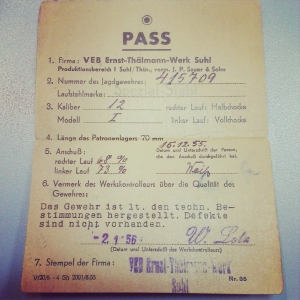 PASS
1. Firma: VEB Ernst-Thälmann-Werk Suhl
Produktionsbereich I Suhl/Thür., vorm. J. P. Sauer & Sohn
2. Nummer des Jagdgewehres: 415709
Laufstahlmarke:
3. Kaliber 12 rechter Lauf: Halbchoke
Modell I linker Lauf: Vollchoke
4. Länge des Patronenlagers 70 mm
15.12.55.
5. Anschuß: Datum und Unterschrift der Person,
rechter Lauf 68 % die den Anschuß durchgeführt hat.
linker Lauf 73 %
6. Vermerk des Werkskontrolleurs über die Qualität des
Gewehres:
Das Gewehr ist lt. den techn. Be-
stimmungen hergestellt. Defekte
sind nicht vorhanden.
- 2. 1. 56
(Datum und Unterschrift des Werkskontrolleurs)
7. Stempel der Firma: VEB Ernst-Thälmann-Werk
Suhl